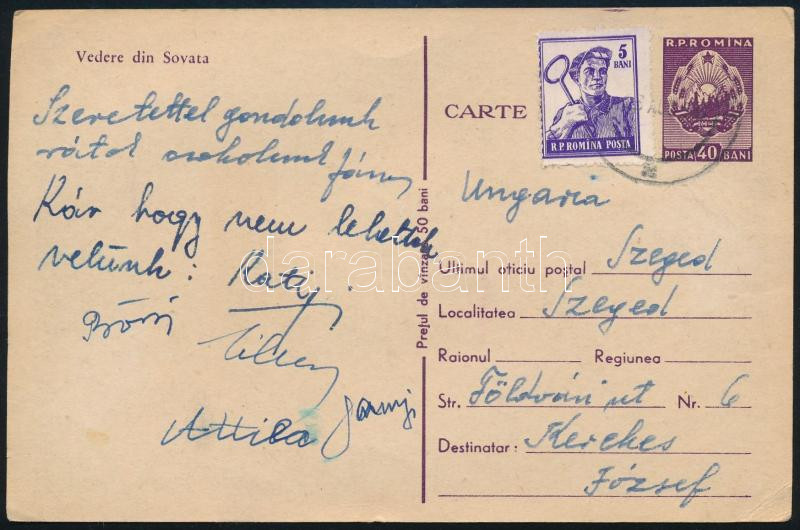 Vedere din Sovata
Szeretettel gondolunk
rátok csokolunk János
Kár hogy nem lehettek
velünk: Kati
Attila
Prețul de vinzare 50 bani
CARTE
5
BANI
R.P. ROMINA POSTA
R.P. ROMINA
POSTA 40 BANI
Ungaria
Ultimul oficiu poștal Szeged
Localitatea Szeged
Raionul Regiunea
Str. Földvári ut Nr. 6
Destinatar: Kerekes
József
darabanth